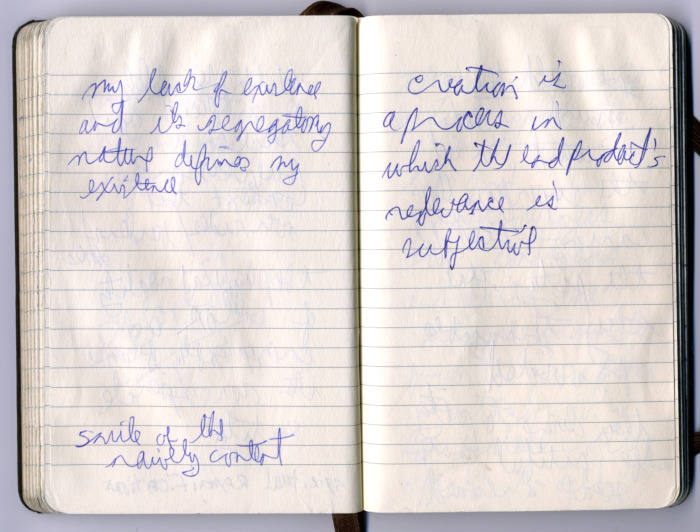 my lack of existence
and it's segregatory
nature defines my
existence
smile of the
naively content
creation is
a process in
which the end product's
relevance is
subjective